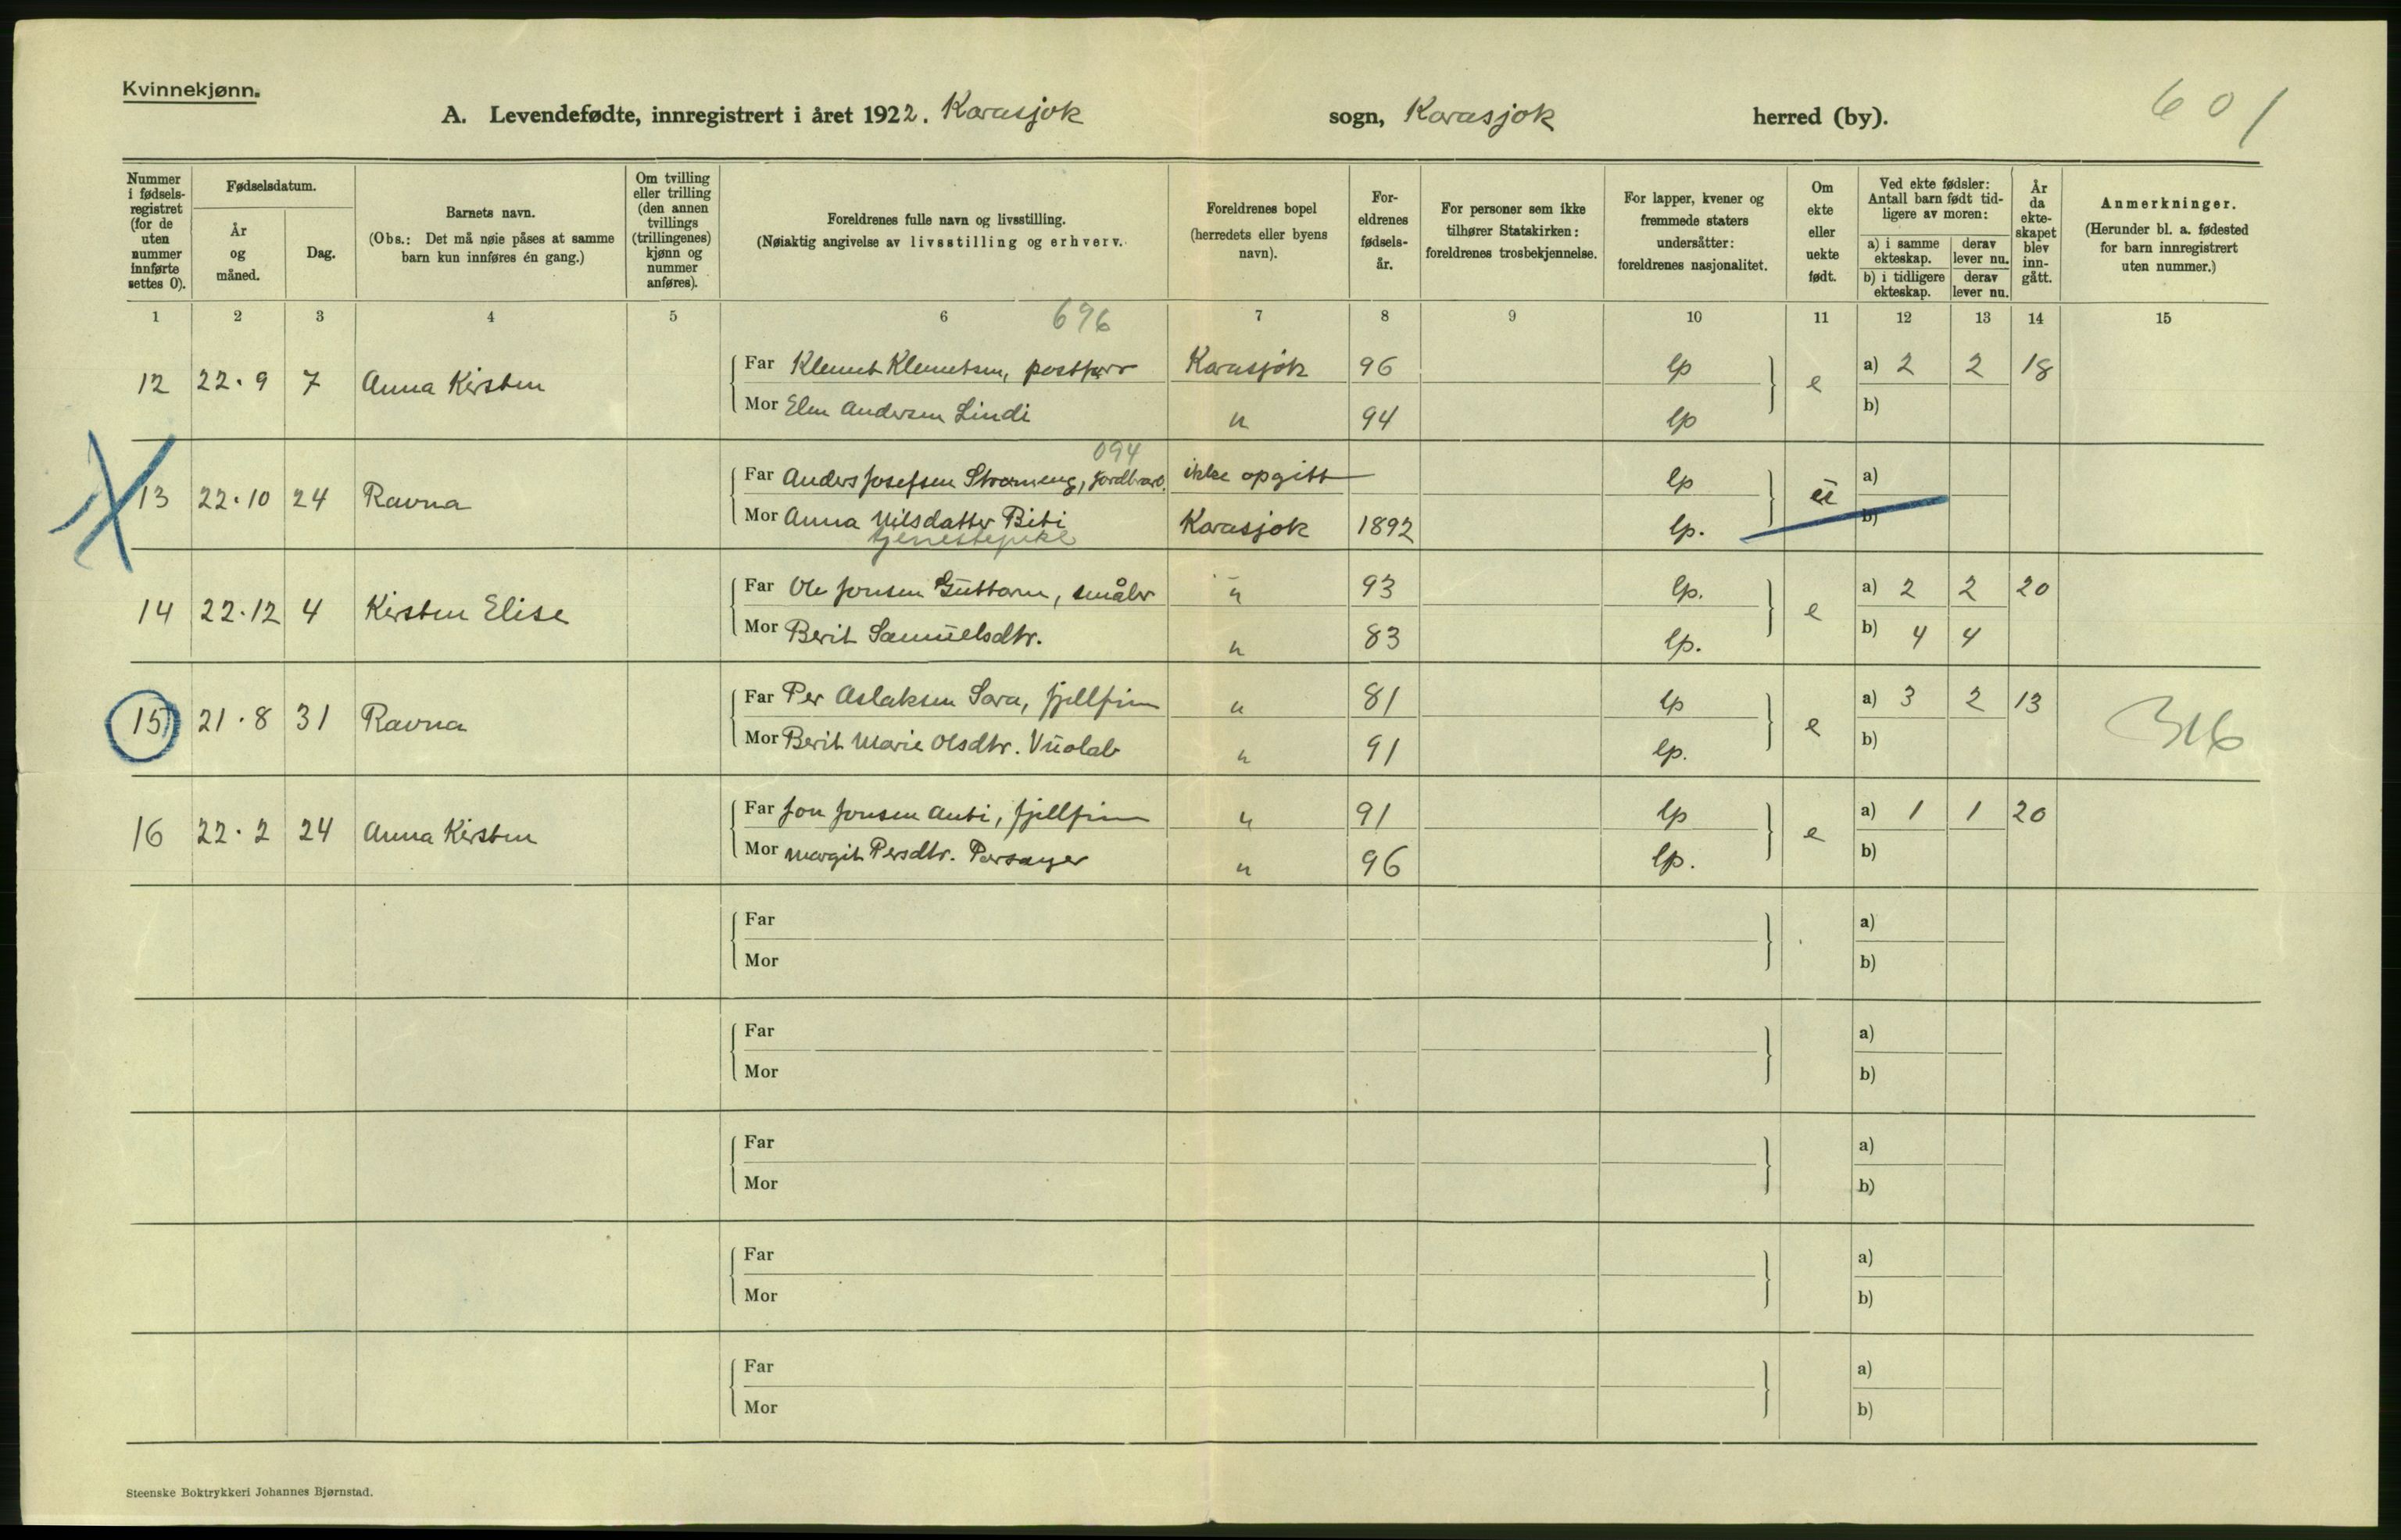 Kvinnekjønn.
A. Levendefødte, innregistrert i året 1922. Karasjok sogn, Karasjok herred (by).
601
Nummer i fødsels-registret (for de uten nummer innførte settes 0).
Fødselsdatum.
År og måned.
Dag.
Barnets navn.
(Obs.: Det må nøie påses at samme barn kun innføres én gang.)
Om tvilling eller trilling (den annen tvillings (trillingenes) kjønn og nummer anføres).
Foreldrenes fulle navn og livsstilling.
(Nøiaktig angivelse av livsstilling og erhverv.
Foreldrenes bopel (herredets eller byens navn).
For-eldrenes fødsels-år.
For personer som ikke tilhører Statskirken: foreldrenes trosbekjennelse.
For lapper, kvener og fremmede staters undersåtter: foreldrenes nasjonalitet.
Om ekte eller uekte født.
Ved ekte fødsler: Antall barn født tid-ligere av moren:
a) i samme ekteskap. derav lever nu.
b) i tidligere ekteskap. derav lever nu.
År da ekte-skapet blev inn-gått.
Anmerkninger.
(Herunder bl. a. fødested for barn innregistrert uten nummer.)
1 2 3 4 5 6 7 8 9 10 11 12 13 14 15
696
12 22.9 7 Anna Kirsten Far Klemet Klemetsen, Karasjok 96 lp e a) 2 2 18
Mor Elen Andersen Lindi " 94 lp b)
094
13 22.10 24 Ravna Far Anders Josefsen Strømeng, jordbrarb. ikke opgitt lp u a)
Mor Anna Nilsdatter Biti Karasjok 1892 lp. b)
tjenestepike
14 22.12 4 Kirsten Elise Far Ole Jonsen Guttorm, småbr " 93 lp. e a) 2 2 20
Mor Berit Samuelsdtr. " 83 lp. b) 4 4
15 21.8 31 Ravna Far Per Aslaksen Sara, fjellfinn " 81 lp e a) 3 2 13
Mor Berit Marie Olsdtr. Vuolab " 91 lp. b)
316
16 22.2 24 Anna Kirsten Far Jon Jonsen Anti, fjellfinn " 91 lp e a) 1 1 20
Mor Margit Persdtr. Porsanger " 96 lp. b)
Far a)
Mor b)
Far a)
Mor b)
Far a)
Mor b)
Far a)
Mor b)
Far a)
Mor b)
Steenske Boktrykkeri Johannes Bjørnstad.